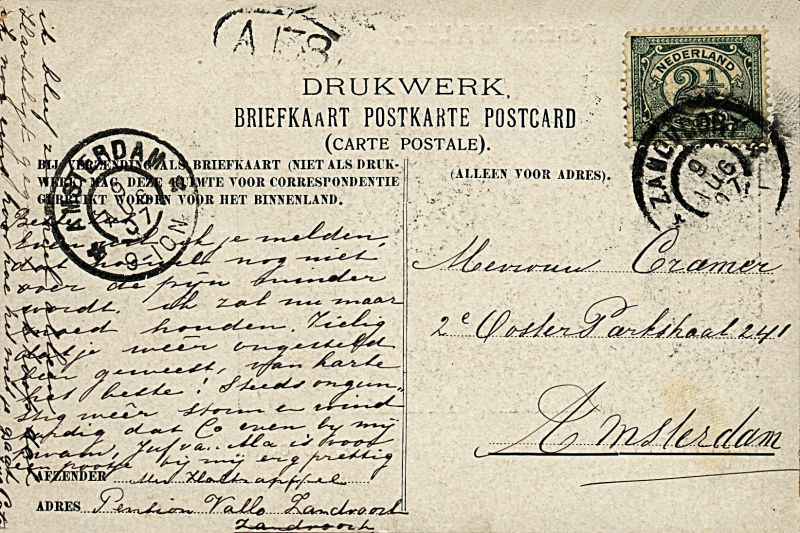 A 138
NEDERLAND
2½
DRUKWERK.
BRIEFKAART POSTKARTE POSTCARD
(CARTE POSTALE).
BIJ VERZENDING ALS BRIEFKAART (NIET ALS DRUK-
WERK) MAG DEZE RUIMTE VOOR CORRESPONDENTIE
GEBRUIKT WORDEN VOOR HET BINNENLAND.
(ALLEEN VOOR ADRES).
AMSTERDAM
07
ZANDVOORT
9
AUG
07
Beste
Even wil ik je melden,
dat nog niet
over de pijn minder
wordt. ik zal nu maar
moed houden. Zielig
dat je weêr ongesteld
ben geweest, van harte
het beste! Steeds ongun-
stig weêr storm en wind
aardig dat Co even bij mij
kwam, Juf va. Ma is voor
een pootje bij mij erg prettig
AFZENDER Mw Holtzappel
ADRES Pension Vallo Zandvoort
Zandvoort
Mevrouw Cramer
2e Ooster Parkstraat 241
Amsterdam